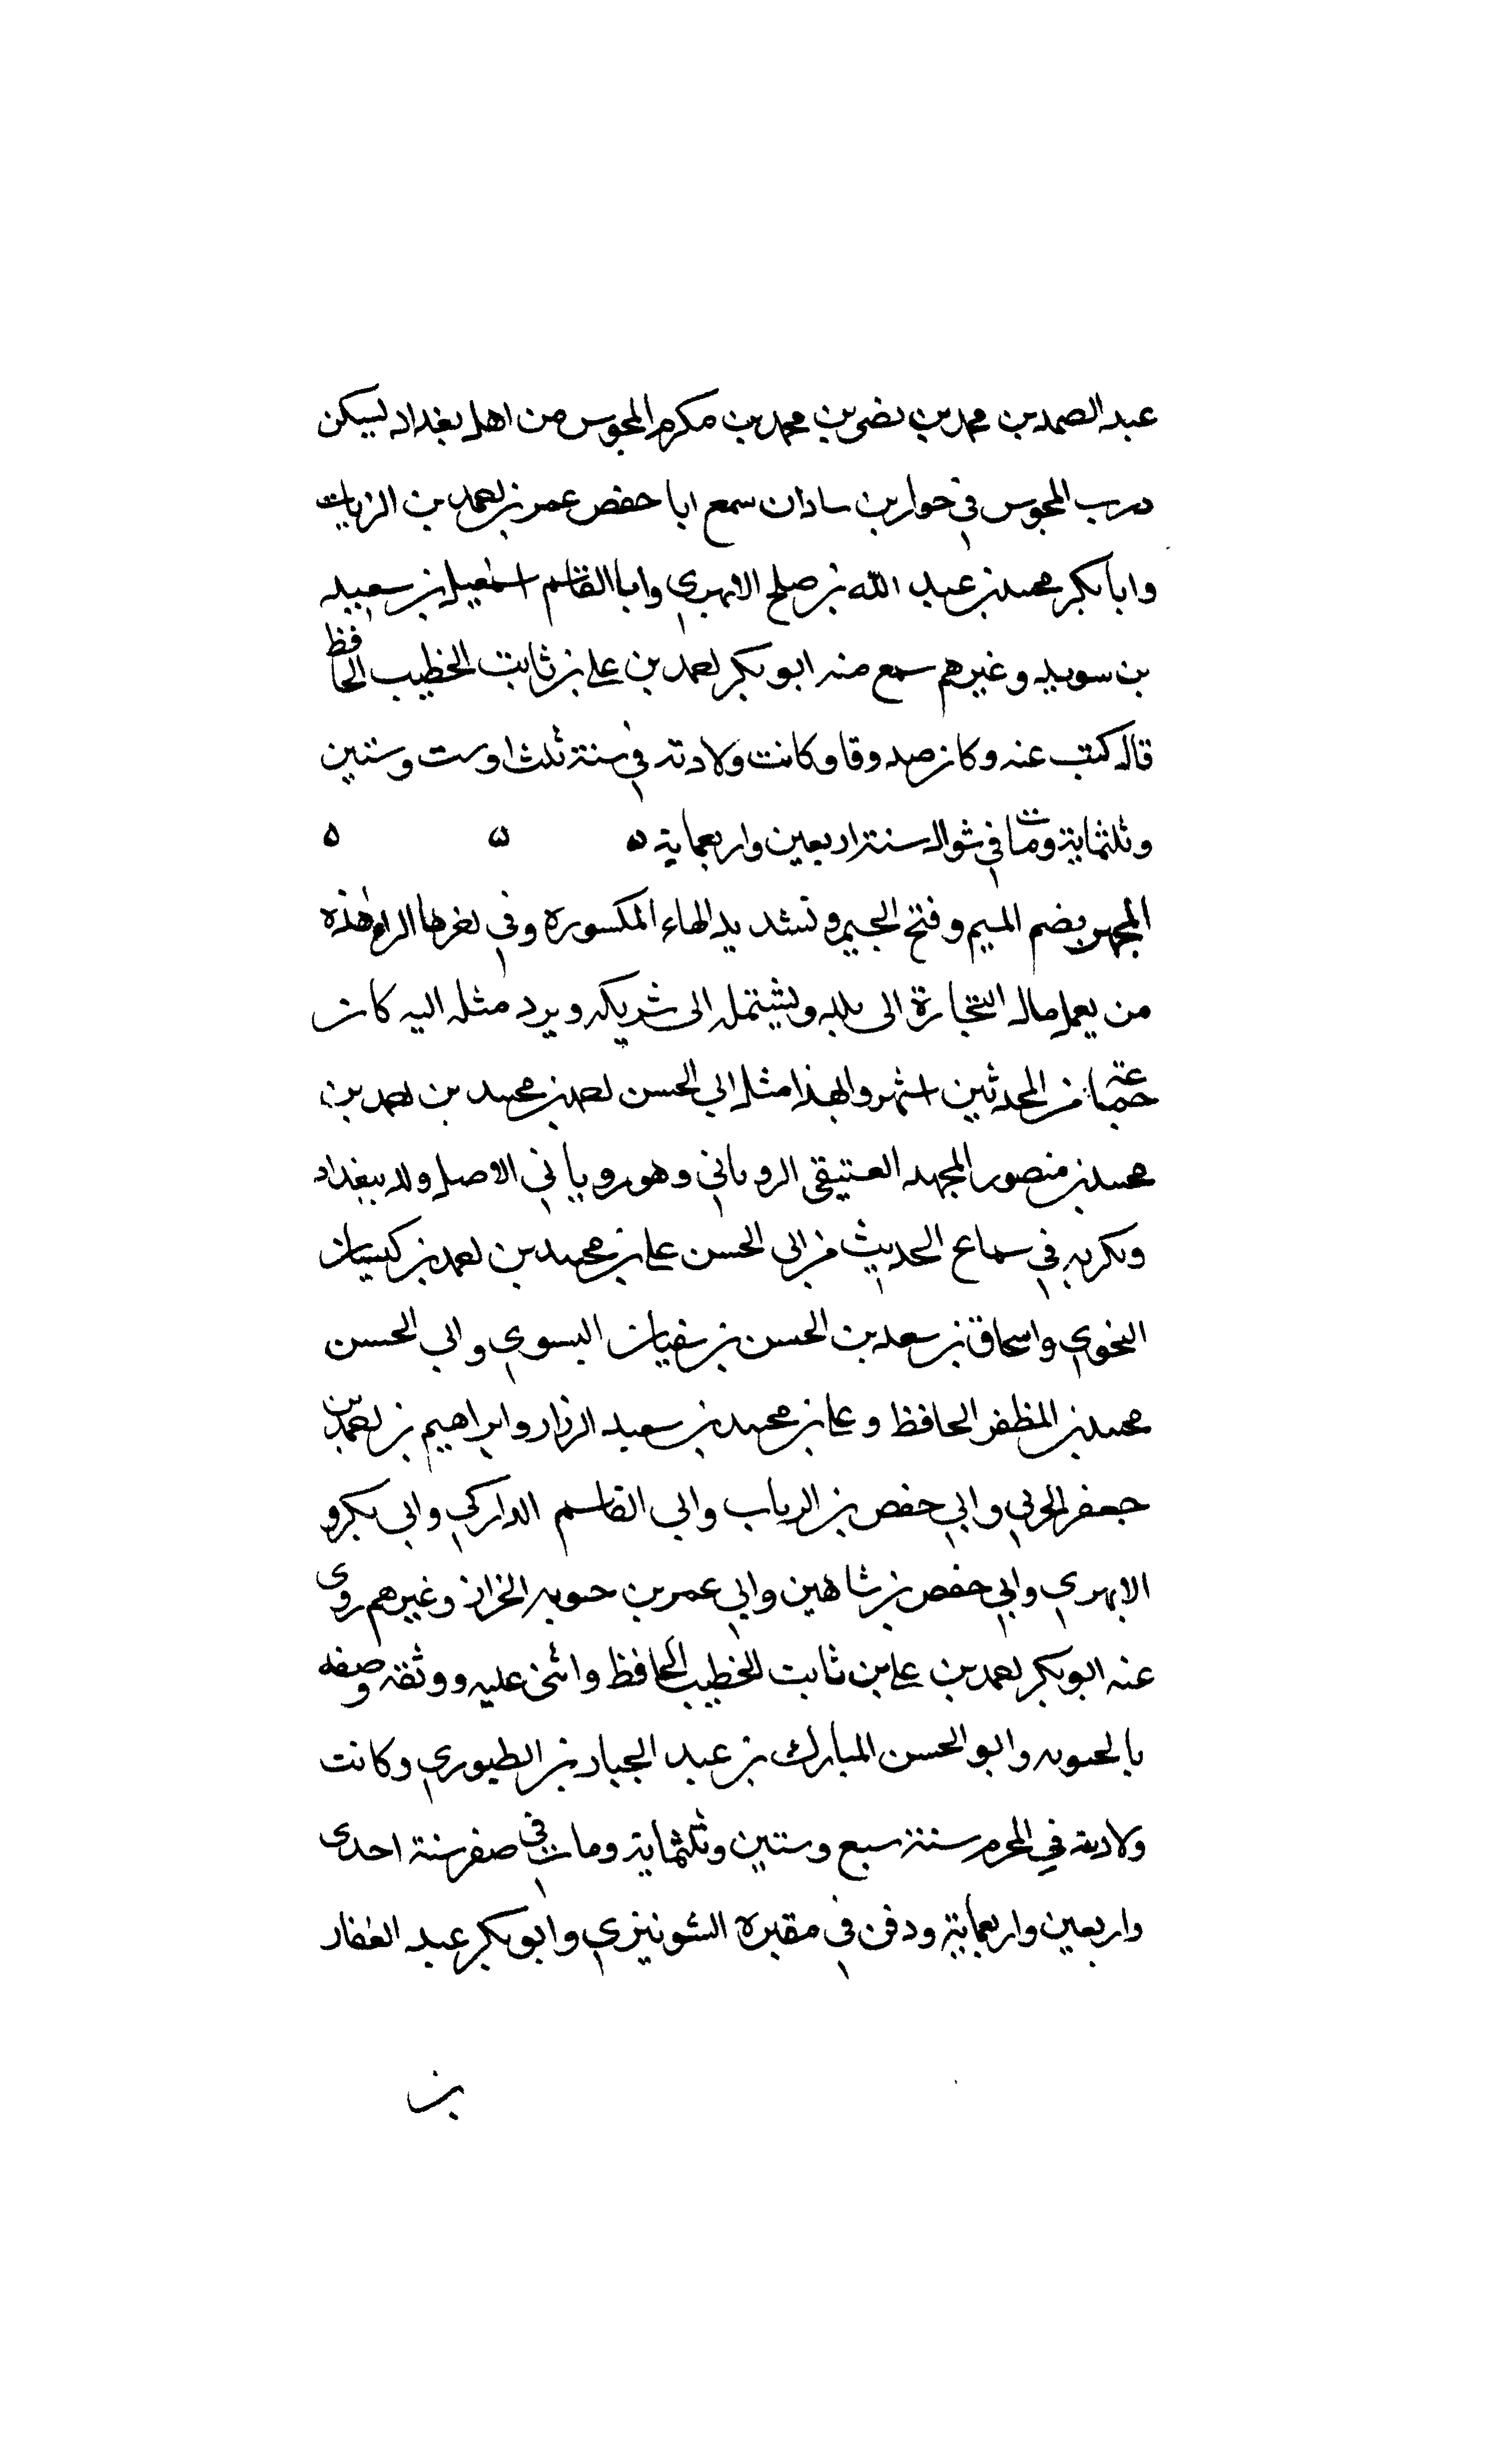 عبد الصمد بن محمد بن نصر بن محمد بن مكرم المجوس من اهل بغداد يسكن
درب المجوس في جوار بن سادان سمع ابا حفص عمر بن احمد بن الزيات
وابا بكر محمد بن عبد الله بن صلح الابهري وابا القاسم اسمعيل بن سعيد
بن سويد وغيرهم سمع منه ابو بكر احمد بن علي بن ثابت الخطيب الحافظ
قال كتب عنه وكان صدوقا وكانت ولادته في سنة ثلث او ست وستين
وثلثماية ومات في شوال سنة اربعين واربعماية ه ه ه
المجهر بضم الميم وفتح الجيم وتشديد الهاء المكسورة وفي اخرها الراء هذه
من يعمل مال التجارة الى بلد ويشتمل الى شريكه ويرد مثله اليه كان
جماعة من المحدثين اشهروا بهذا مثل ابي الحسن احمد بن محمد بن احمد بن
محمد بن منصور المجهد العتيقي الروياني وهو روياني الاصل ولد ببغداد
وبكر به في سماع الحديث من ابي الحسن علي بن محمد بن احمد بن كيسان
النحوي واسحاق بن سعد بن الحسن بن سفيان النسوي وابي الحسن
محمد بن المظفر الحافظ وعلي بن محمد بن سعيد الرزاز وابراهيم بن احمد بن
جعفر الحربي وابي حفص بن الزيات وابي القاسم الداركي وابي بكر و
الابهري وابي حفص بن شاهين وابي عمر بن حيويه الخزاز وغيرهم روى
عنه ابو بكر احمد بن علي بن ثابت الخطيب الحافظ واثنى عليه ووثقه وصفه
وابو الحسن المبارك بن عبد الجبار بن الطيوري وكانت
ولادته في المحرم سنة سبع وستين وثلثماية ومات في صفر سنة احدى
واربعين واربعماية ودفن في مقبرة الشونيزي وابو بكر عبد الغفار
بن